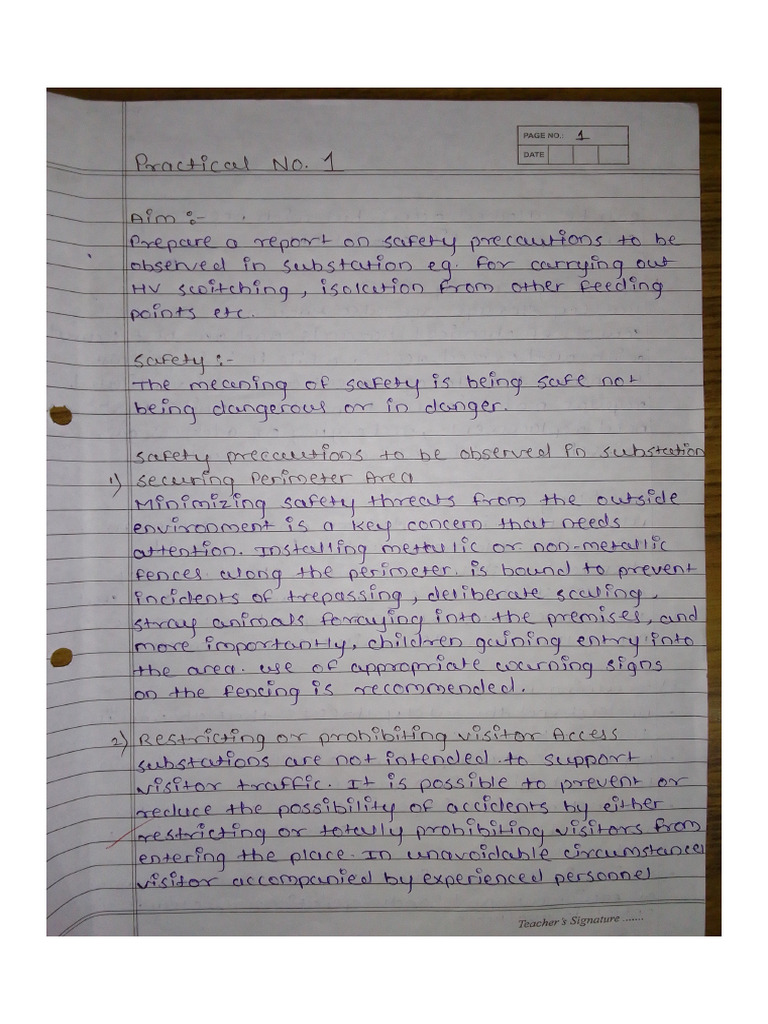 PAGE NO.: 1
DATE
Practical No. 1
Aim :-
Prepare a report on safety precautions to be
observed in substation eg. for carrying out
HV switching, isolation from other feeding
points etc.
Safety :-
The meaning of safety is being safe not
being dangerous or in danger.
Safety precautions to be observed in substation
1) Securing Perimeter Area
Minimizing safety threats from the outside
environment is a key concern that needs
attention. Installing metallic or non-metallic
fences along the perimeter. is bound to prevent
incidents of trepassing, deliberate scaling,
stray animals forraying into the premises, and
more importantly, children gaining entry into
the area. use of appropriate warning signs
on the fencing is recommended.
2) Restricting or prohibiting visitor Access
substations are not intended. to support
visitor traffic. It is possible to prevent or
reduce the possibility of accidents by either
restricting or totally prohibiting visitors from
entering the place. In unavoidable circumstances
visitor accompanied by experienced personnel
Teacher's Signature .......